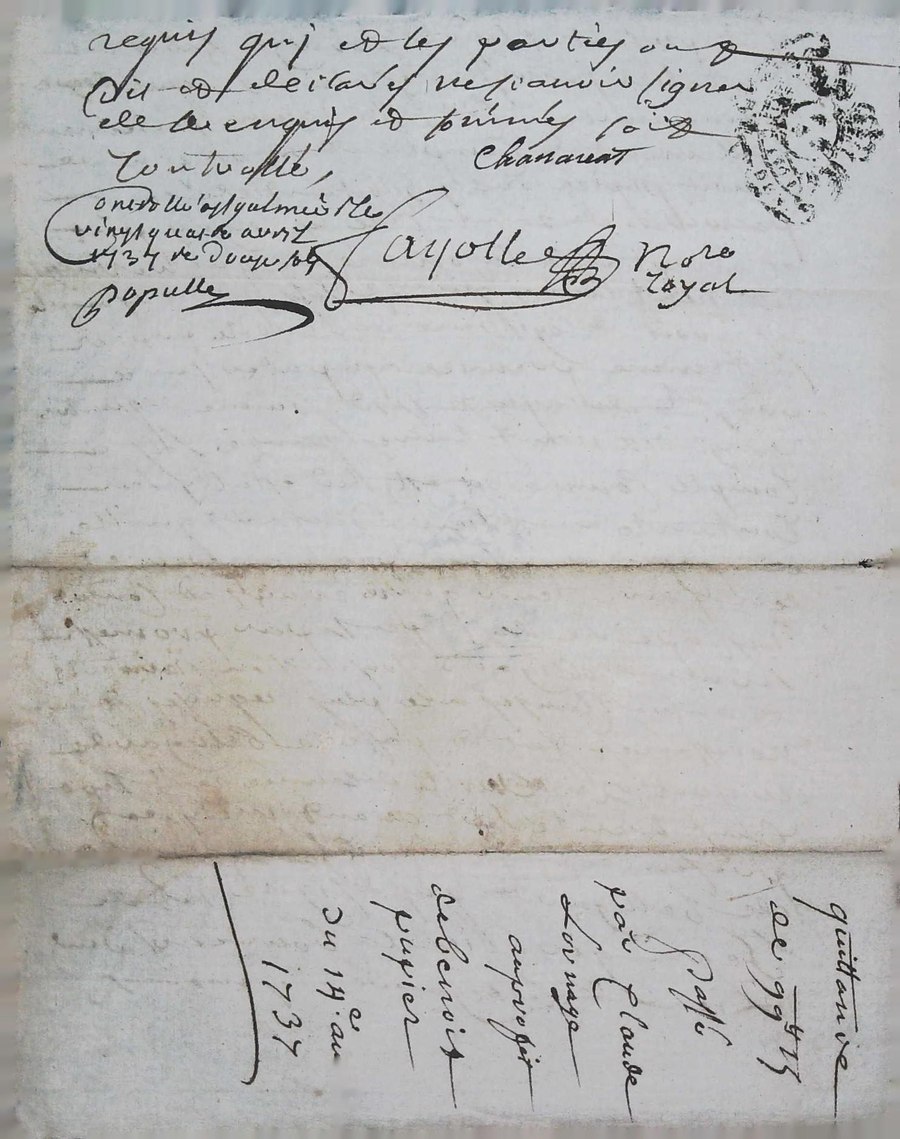 requis qui et les parties ont
dit et declarés ne scavoir signer
de ce enquis et sommés soit
Controllé,
Chanareat
Controllé a St galmier le
vingt quatre avril
1737 re douze sols
Papulle
Fayolle
Nore
Royal
quittance
de 99# 15
Passé
par Claude
Lornage
au proffit
de benoit
pupier
Du 14e. au
1737